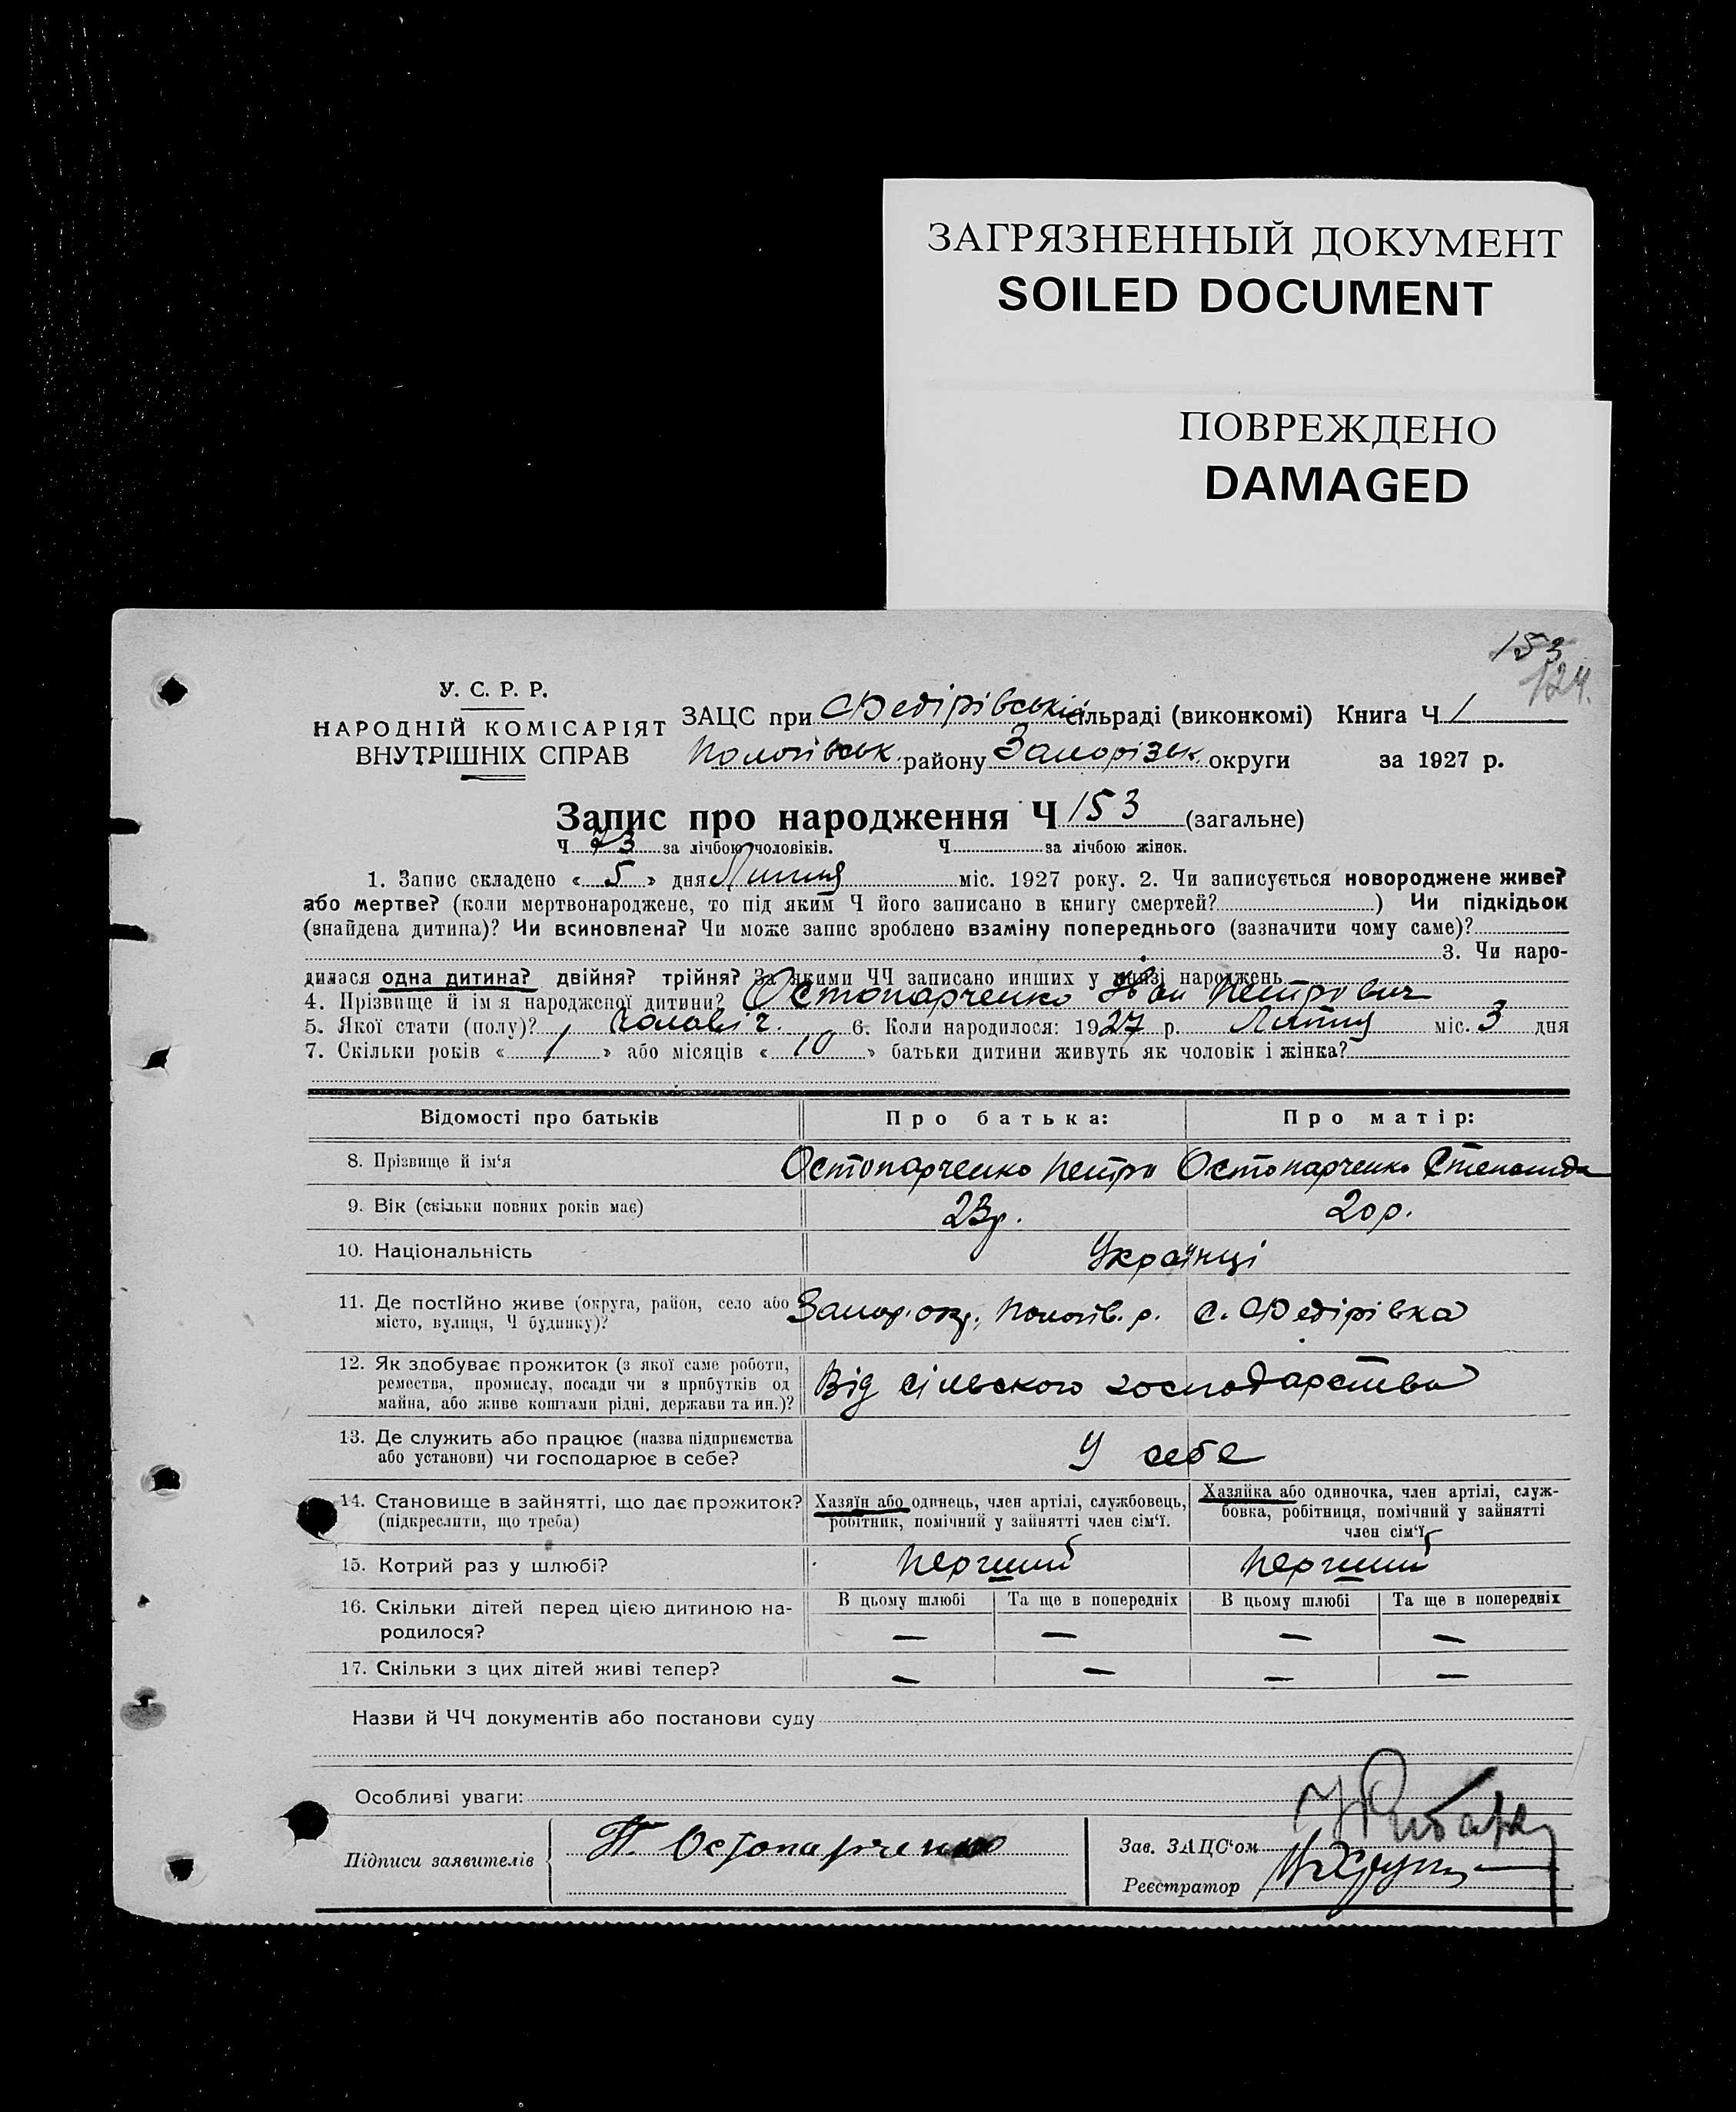 ЗАГРЯЗНЕННЫЙ ДОКУМЕНТ
SOILED DOCUMENT
ПОВРЕЖДЕНО
DAMAGED
153
124.
У. С. Р. Р.
НАРОДНІЙ КОМІСАРІЯТ
ВНУТРІШНІХ СПРАВ
ЗАЦС при Федірівській сільраді (виконкомі) Книга Ч 1
Пологівськ. району Запорізьк. округи за 1927 р.
Запис про народження Ч 153 (загальне)
Ч 73 за лічбою чоловіків. Ч за лічбою жінок.
1. Запис складено « 5 » дня Липня міс. 1927 року. 2. Чи записується новороджене живе?
або мертве? (коли мертвонароджене, то під яким Ч його записано в книгу смертей? ) Чи підкідьок
(знайдена дитина)? Чи всиновлена? Чи може запис зроблено взаміну попереднього (зазначити чому саме)?
3. Чи наро-
дилася одна дитина? двійня? трійня? За якими ЧЧ записано инших у книзі народжень
4. Прізвище й ім'я народженої дитини? Остопарченко Іван Петрович
5. Якої стати (полу)? чоловіч. 6. Коли народилося: 1927 р. Липня міс. 3 дня
7. Скільки років « 1 » або місяців « 10 » батьки дитини живуть як чоловік і жінка?
Відомості про батьків Про батька: Про матір:
8. Прізвище й ім'я Остопарченко Петро Остопарченко Степанида
9. Вік (скільки повних років має) 23р. 20р.
10. Національність Українці
11. Де постійно живе (округа, район, село або
місто, вулиця, Ч будинку)? Запор. окр., Пологів. р. с. Федірівка
12. Як здобуває прожиток (з якої саме роботи,
ремества, промислу, посади чи з прибутків од
майна, або живе коштами рідні, держави та ин.)? Від сільського господарства
13. Де служить або працює (назва підприємства
або установи) чи господарює в себе? У себе
14. Становище в зайнятті, що дає прожиток?
(підкреслити, що треба)
Хазяїн або одинець, член артілі, службовець,
робітник, помічний у зайнятті член сім'ї.
Хазяйка або одиночка, член артілі, служ-
бовка, робітниця, помічний у зайнятті
член сім'ї
15. Котрий раз у шлюбі? перший перший
16. Скільки дітей перед цією дитиною на-
родилося?
В цьому шлюбі Та ще в попередніх В цьому шлюбі Та ще в попередніх
— — — —
17. Скільки з цих дітей живі тепер? — — — —
Назви й ЧЧ документів або постанови суду
Особливі уваги:
Підписи заявителів П. Остопарченко
Зав. ЗАЦС'ом
Реєстратор